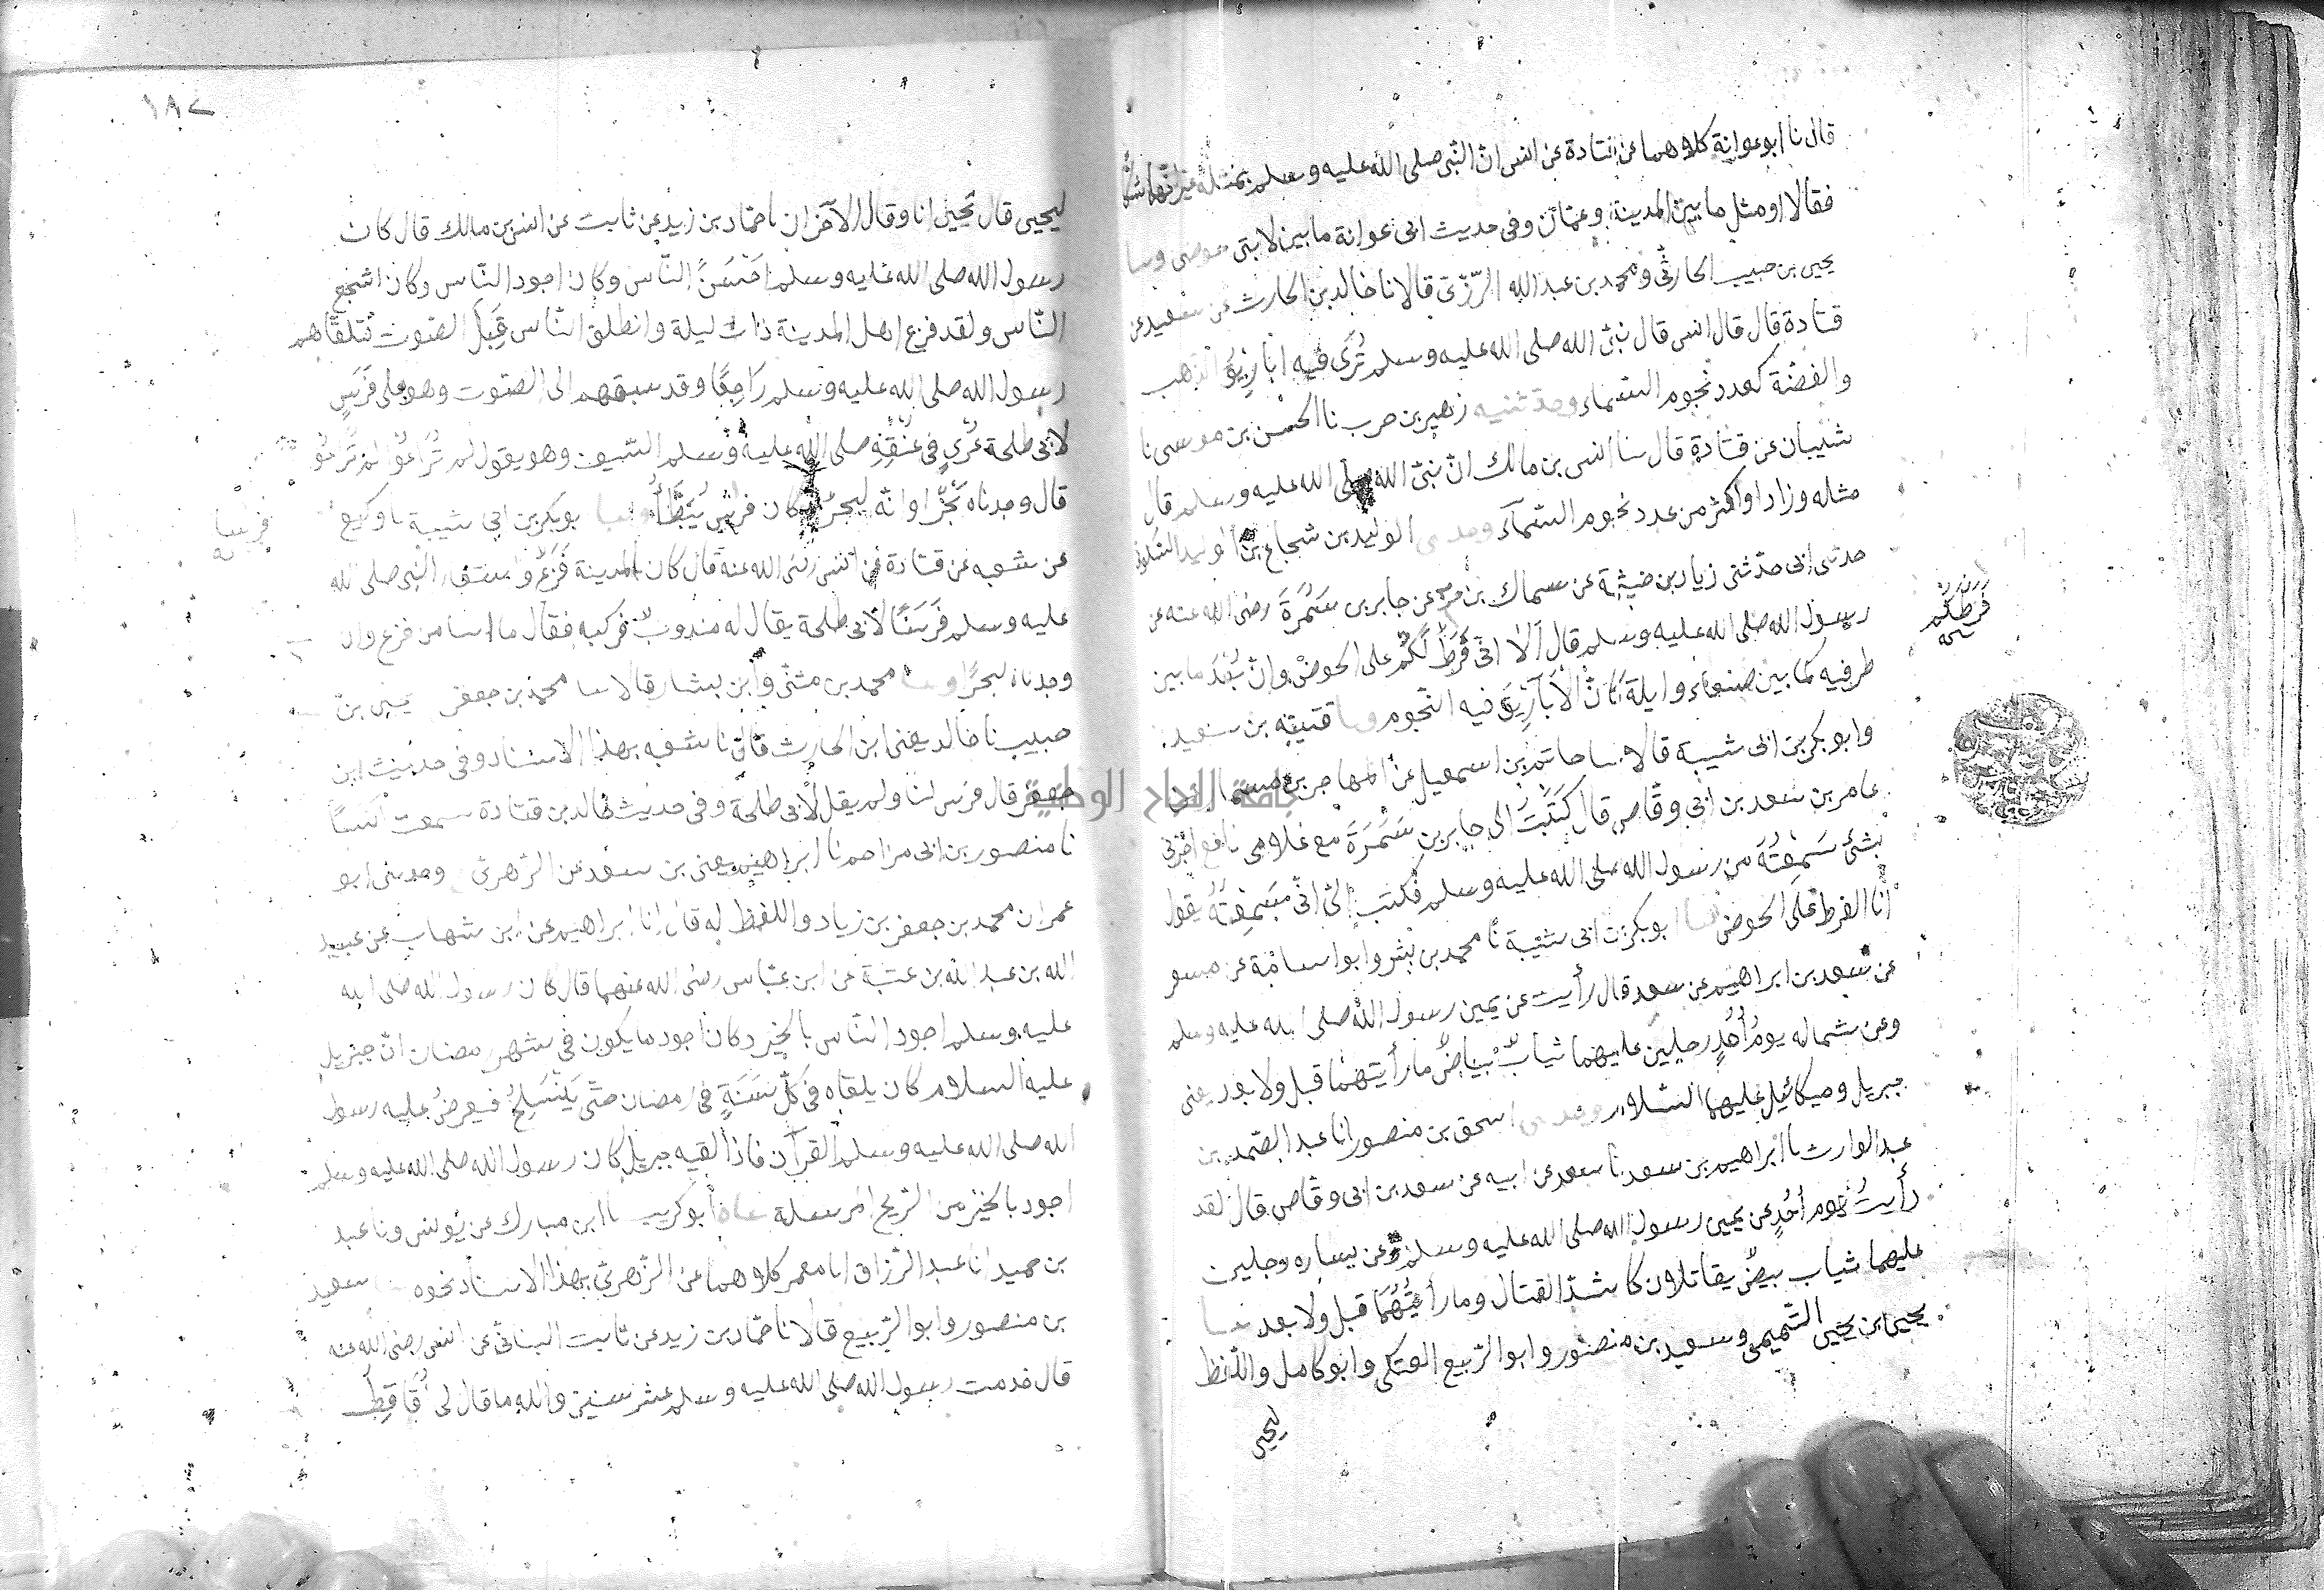 قال نا ابو عوانة كلاهما عن قتادة عن انس ان النبي صلى الله عليه وسلم بمثله غير انهما شكّا
فقالا او مثل ما بين المدينة وعمان وفي حديث ابي عوانة ما بين لابتي حوضي وحدثنا
يحيى بن حبيب الحارثي ومحمد بن عبد الله الرّزّيّ قالا نا خالد بن الحارث عن سعيد عن
قتادة قال قال انس قال نبيّ الله صلى الله عليه وسلم تُرَى فيه اباريق الذهب
والفضّة كعدد نجوم السّماء وحدّثنيه زهير بن حرب نا الحسن بن موسى نا
شيبان عن قتادة قال نا انس بن مالك انّ نبيّ الله صلى الله عليه وسلم قال
مثله وزاد او اكثر من عدد نجوم السّماء وحدثني الوليد بن شجاع بن الوليد السّكوني
حدثني ابي حدّثني زياد بن خيثمة عن سماك بن حرب عن جابر بن سَمُرَةَ رضي الله عنه عن
رسول الله صلى الله عليه وسلم قال الا انّي فَرَطٌ لكُم على الحوض وانّ بُعْدَ ما بين
طرفيه كما بين صنعاء وايلة كانّ الاَباريق فيه النّجوم وحدثنا قتيبة بن سعيد
وابو بكر بن ابي شيبة قالا نا حاتم بن اسمعيل عن المهاجر بن مسمار عن
عامر بن سعد بن ابي وقّاص قال كتبتُ الى جابر بن سَمُرَةَ مع غلامي نافع اخبرني
بشئ سَمِعْتَهُ من رسول الله صلى الله عليه وسلم فكتب اليّ انّي سَمِعْتُهُ يقول
انا الفرط على الحوض حدثنا ابو بكر بن ابي شيبة نا محمد بن بشر وابو اسامة عن مسعر
عن سعد بن ابراهيم عن سعد قال رأيت عن يمين رسول الله صلى الله عليه وسلم
وعن شماله يوم اُحُدٍ رجلين عليهما ثيابُ بياضٍ ما رأيتهما قبل ولا بعد يعني
جبريل وميكائيل عليهما السّلام وحدثني اسحق بن منصور انا عبد الصّمد بن
عبد الوارث نا ابراهيم بن سعد نا سعد عن ابيه عن سعد بن ابي وقّاص قال لقد
رأيتُ يوم اُحُدٍ عن يمين رسول الله صلى الله عليه وسلم وعن يساره رجلين
عليهما ثياب بيضٌ يقاتلان كاشدّ القتال وما رأيتُهُمَا قبل ولا بعد حدثنا
يحيى بن يحيى التّميمي وسعيد بن منصور وابو الرّبيع العتكي وابو كامل واللّفظ
ليحيى
فَرَطُكُم
١٨٢
ليحيى قال يحيى انا وقال الآخران نا حمّاد بن زيد عن ثابت عن انس بن مالك قال كان
رسول الله صلى الله عليه وسلم احْسَنَ النّاس وكان اجود النّاس وكان اشجع
النّاس ولقد فزع اهل المدينة ذات ليلة وانطلق النّاس قِبَلَ الصّوت فتلقّاهم
رسول الله صلى الله عليه وسلم رَاجِعًا وقد سبقهم الى الصّوت وهو على فَرَسٍ
لابي طلحة عُرْيٍ في عُنُقِهِ صلى الله عليه وسلم السّيف وهو يقول لم تُرَاعُوا لم تُرَاعُوا
قال وجدناه بَحْرًا او انّه لبحرٌ وكان فرسٌ يُبَطَّأُ حدثنا ابو بكر بن ابي شيبة نا وكيع
عن شعبه عن قتادة عن انس رضي الله عنه قال كان بالمدينة فَزَعٌ فاستعار النّبي صلى الله
عليه وسلم فَرَسًا لابي طلحة يقال له مندوبٌ فركبه فقال ما راينا من فزع وان
وجدناه لبحرًا وحدثنا محمد بن مثنّى وابن بشار قالا نا محمد بن جعفر يحيى بن
حبيب نا خالد يعني ابن الحارث قال نا شعبه بهذا الاسناد وفي حديث ابن
جعفر قال فرس لنا ولم يقل لابي طلحة وفي حديث خالد بن قتادة سمعت انسًا
نا منصور بن ابي مزاحم نا ابراهيم يعني بن سعد عن الزّهري وحدثني ابو
عمران محمد بن جعفر بن زياد واللفظ له قال انا ابراهيم عن ابن شهاب عن عبيد
الله بن عبد الله بن عتبة عن ابن عبّاس رضي الله عنهما قال كان رسول الله صلى الله
عليه وسلم اجود النّاس بالخير وكان اجود ما يكون في شهر رمضان انّ جبريل
عليه السلام كان يلقاه في كلّ سَنَةٍ في رمضان حتّى يَنْسَلِخُ فيعرضُ عليه رسول
الله صلى الله عليه وسلم القرآن فاذا لقيه جبريل كان رسول الله صلى الله عليه وسلم
اجود بالخير من الرّيح المرسلة حدثناه ابو كريب نا ابن مبارك عن يونس ونا عبد
بن حميد انا عبد الرّزاق انا معمر كلاهما عن الزّهريّ بهذا الاسناد نحوه حدثنا سعيد
بن منصور وابو الرّبيع قالا نا حمّاد بن زيد عن ثابت البناني عن انس رضي الله عنه
قال خدمت رسول الله صلى الله عليه وسلم عشر سنين والله ما قال لي اُفًّا قطّ
فرسا
جامعة النجاح الوطنية